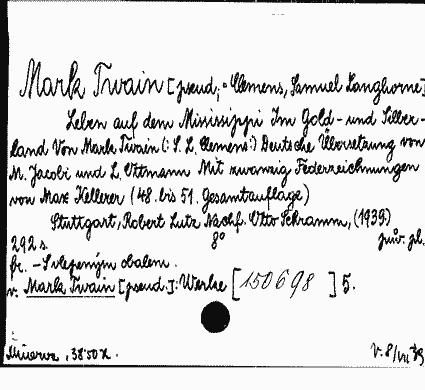 Mark Twain [pseud; = Clemens, Samuel Langhorne]
Leben auf dem Mississippi Im Gold- und Silber-
land Von Mark Twain (: S. L. Clemens:) Deutsche Übersetzung von
M. Jacobi und L. Ottmann Mit zwanzig Federzeichnungen
von Max Kellerer (48. bis 51. Gesamtauflage)
Stuttgart, Robert Lutz Nachf. Otto Schramm, (1939.)
292 s. 8° pův. pl.
br. - S vlepeným obalem.
v. Mark Twain [pseud.]: Werke [150698] 5.
Minerva, 38.50 K. V. 8/VII 39